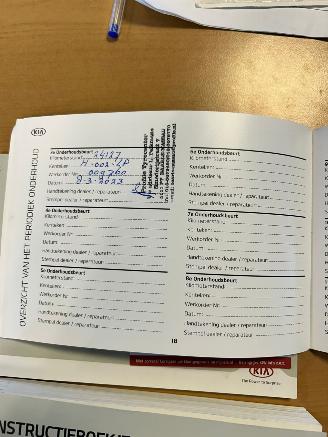 KIA
OVERZICHT VAN HET PERIODIEK ONDERHOUD
3e Onderhoudsbeurt
Kilometerstand
Kenteken: H-002-LP
Werkorder Nr.:
Datum: 9-3-2023
Handtekening dealer / reparateur
Stempel dealer / reparateur:
4e Onderhoudsbeurt
Kilometerstand
Kenteken:
Werkorder Nr.
Datum:
Handtekening dealer / reparateur:
Stempel dealer / reparateur:
5e Onderhoudsbeurt
Kilometerstand
Kenteken:
Werkorder Nr.
Datum:
Handtekening dealer / reparateur:
Stempel dealer / reparateur:
6e Onderhoudsbeurt
Kilometerstand
Kenteken:
Werkorder Nr.
Datum:
Handtekening dealer / reparateur:
Stempel dealer / reparateur:
7e Onderhoudsbeurt
Kilometerstand
Kenteken:
Werkorder Nr.
Datum:
Handtekening dealer / reparateur:
Stempel dealer / reparateur:
8e Onderhoudsbeurt
Kilometerstand
Kenteken:
Werkorder Nr.
Datum:
Handtekening dealer / reparateur:
Stempel dealer / reparateur:
18
KIA
The Power to Surprise
INSTRUCTIEBOEKJE